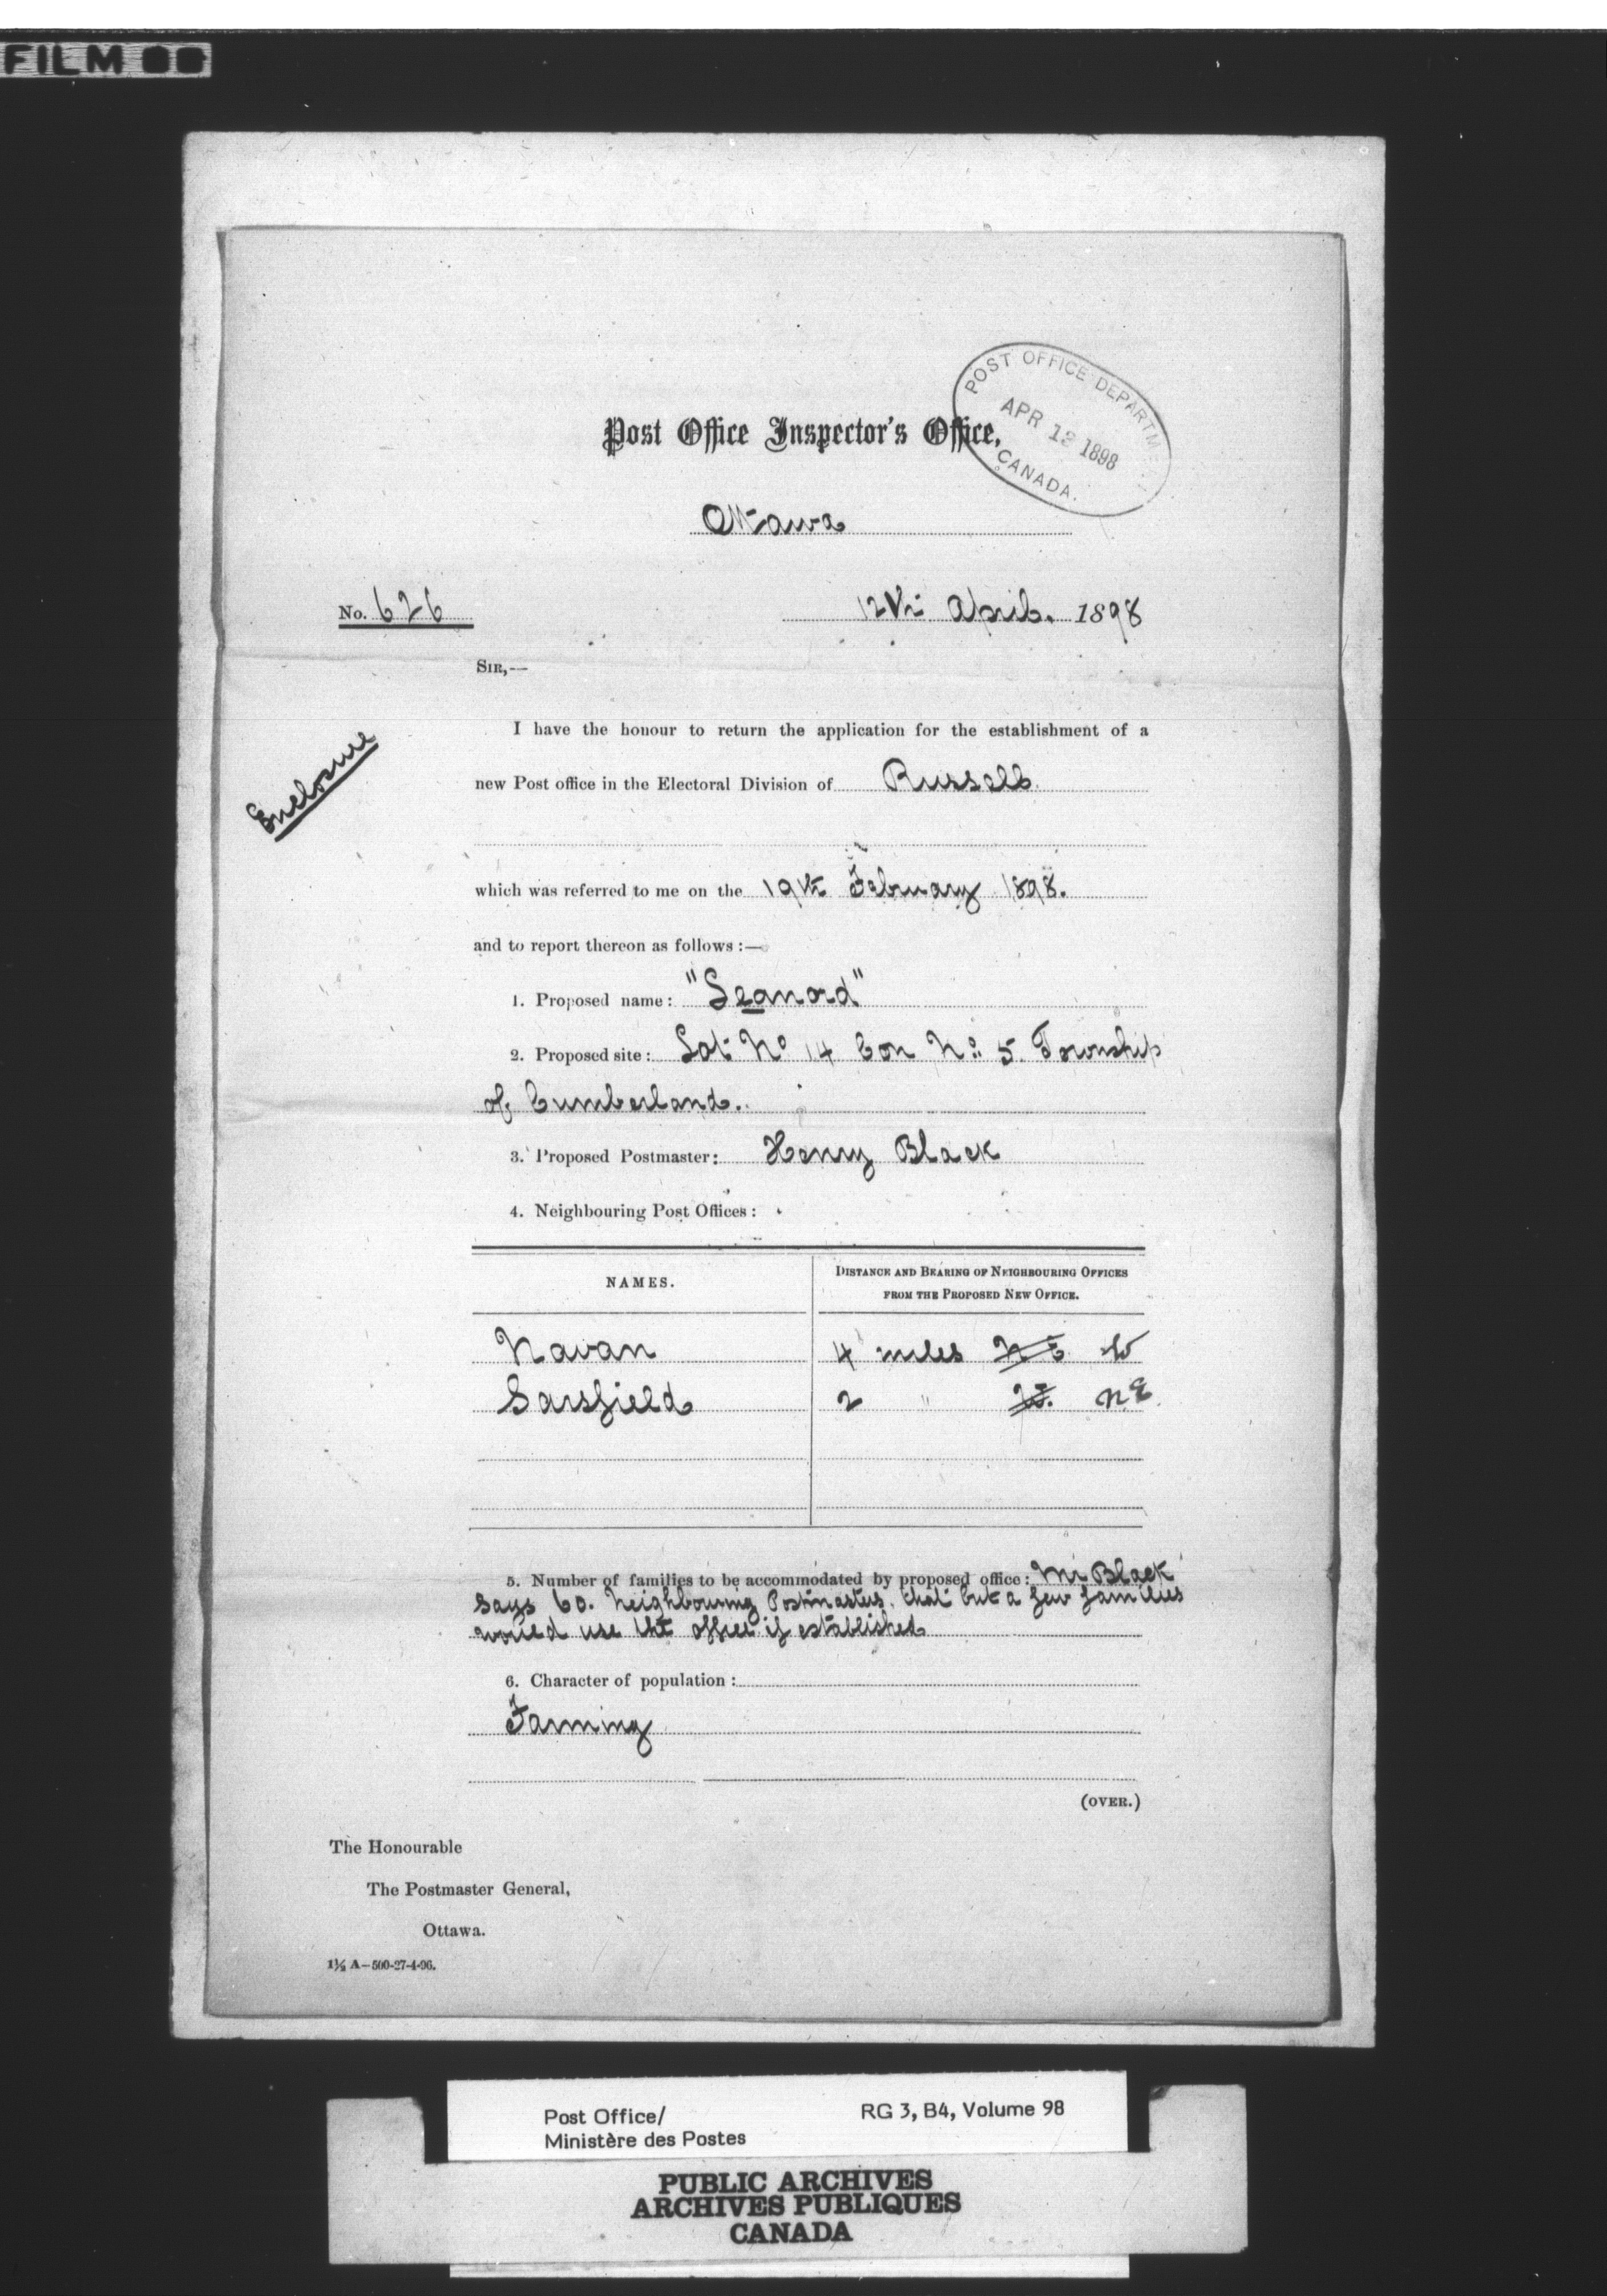 FILM
POST OFFICE DEPARTM
APR 12 1898
CANADA.
Post Office Inspector's Office,
Ottawa
No. 626
12th April. 1898
SIR,—
Enclosure
I have the honour to return the application for the establishment of a
new Post office in the Electoral Division of Russell
which was referred to me on the 19th February 1898.
and to report thereon as follows :—
1. Proposed name: "Leanord"
2. Proposed site: Lot No 14 Con No: 5. Township
of Cumberland.
3. Proposed Postmaster: Henry Black
4. Neighbouring Post Offices :
NAMES.
DISTANCE AND BEARING OF NEIGHBOURING OFFICES
FROM THE PROPOSED NEW OFFICE.
Navan 4 miles N E W
Sarsfield 2 " N E
5. Number of families to be accommodated by proposed office: Mr Black
says 60. Neighbouring Postmasters, that but a few families
would use the office if established
6. Character of population :
Farming
(OVER.)
The Honourable
The Postmaster General,
Ottawa.
1½ A—500-27-4-96.
Post Office/
Ministère des Postes
RG 3, B4, Volume 98
PUBLIC ARCHIVES
ARCHIVES PUBLIQUES
CANADA